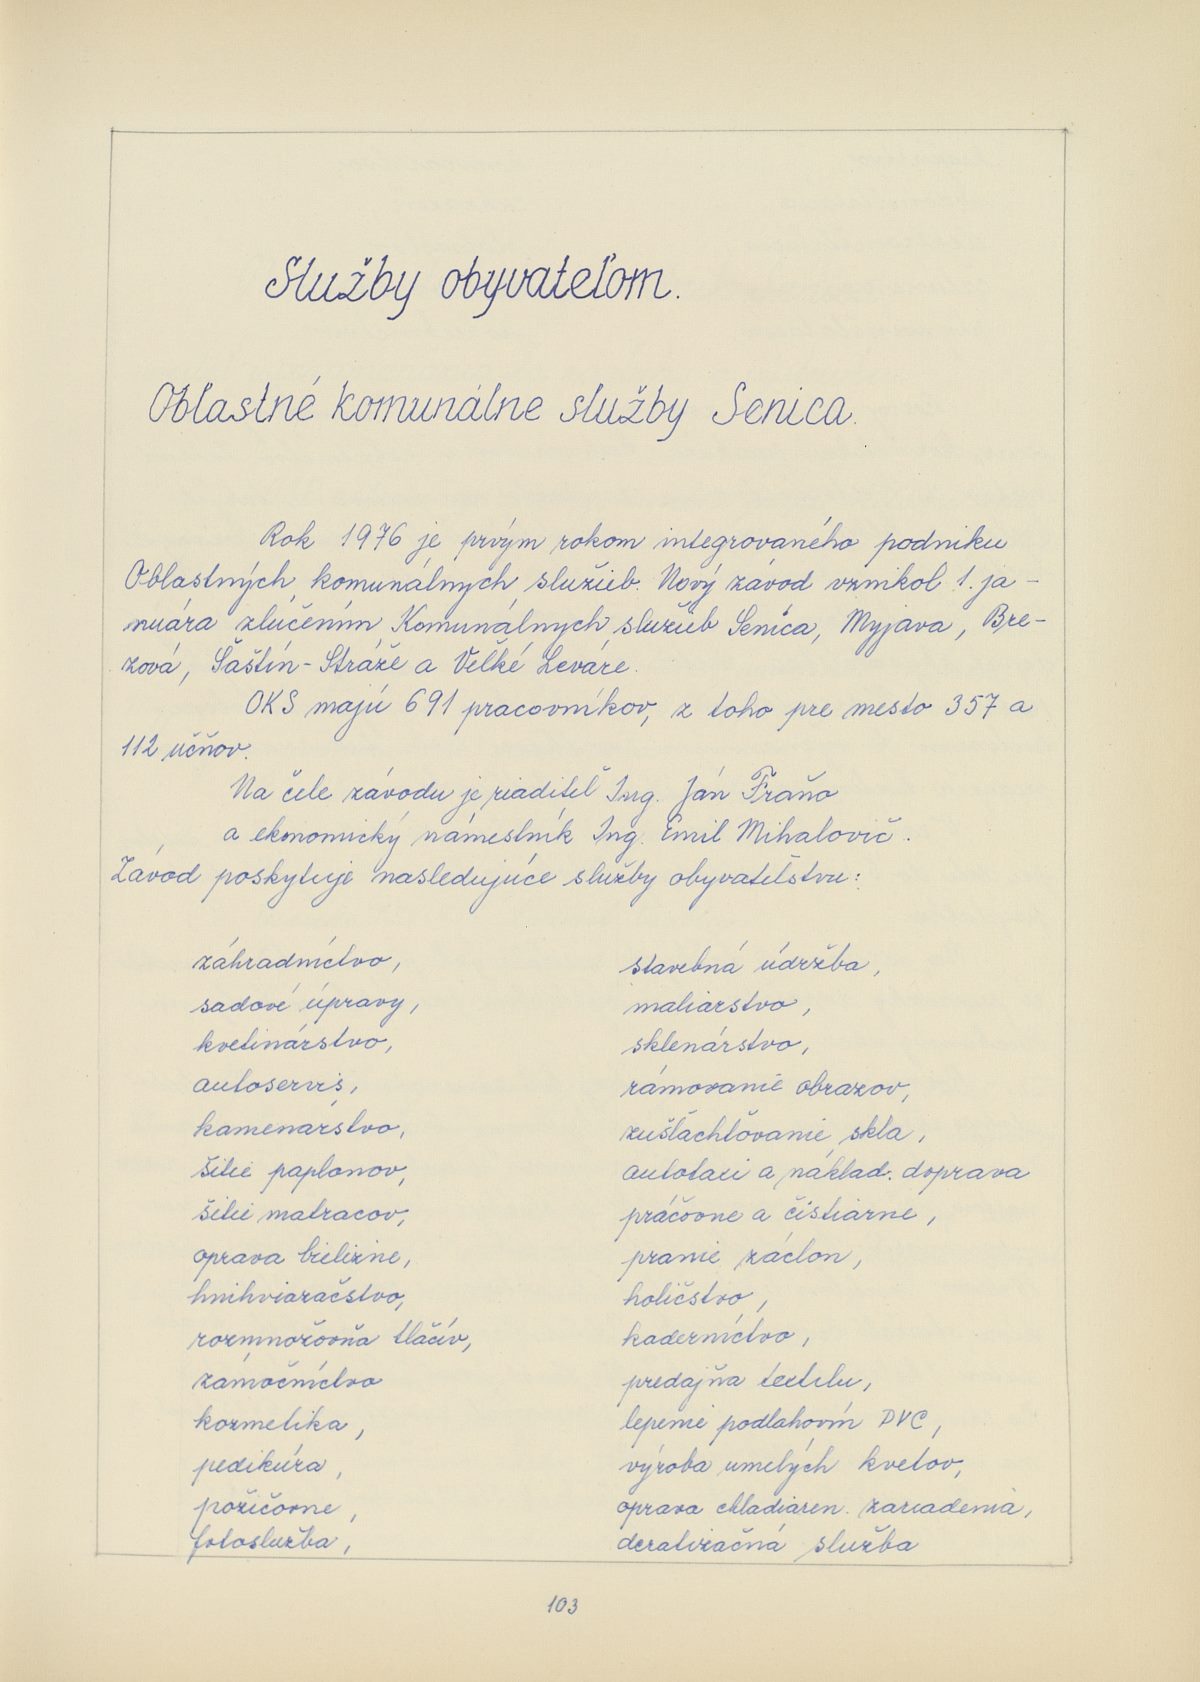 Služby obyvateľom.
Oblastné komunálne služby Senica.
Rok 1976 je prvým rokom integrovaného podniku
Oblastných komunálnych služieb. Nový závod vznikol 1. ja-
nuára zlúčením Komunálnych služieb Senica, Myjava, Bre-
zová, Šaštín-Stráže a Veľké Leváre.
OKS majú 691 pracovníkov, z toho pre mesto 357 a
112 učňov.
Na čele závodu je riaditeľ Ing. Ján Fraňo
a ekonomický námestník Ing. Emil Mihalovič.
Závod poskytuje nasledujúce služby obyvateľstvu:
záhradníctvo,
sadové úpravy,
kvetinárstvo,
autoservis,
kamenárstvo,
šitie paplonov,
šitie matracov,
oprava bielizne,
knihviazačstvo,
rozmnožovňa tlačív,
zámočníctvo
kozmetika,
pedikúra,
požičovne,
fotoslužba,
stavebná údržba,
maliarstvo,
sklenárstvo,
rámovanie obrazov,
zušľachťovanie skla,
autotaxi a náklad. doprava
práčovne a čistiarne,
pranie záclon,
holičstvo,
kaderníctvo,
predajňa textilu,
lepenie podlahovín PVC,
výroba umelých kvetov,
oprava chladiaren. zariadenia,
deratizačná služba
103